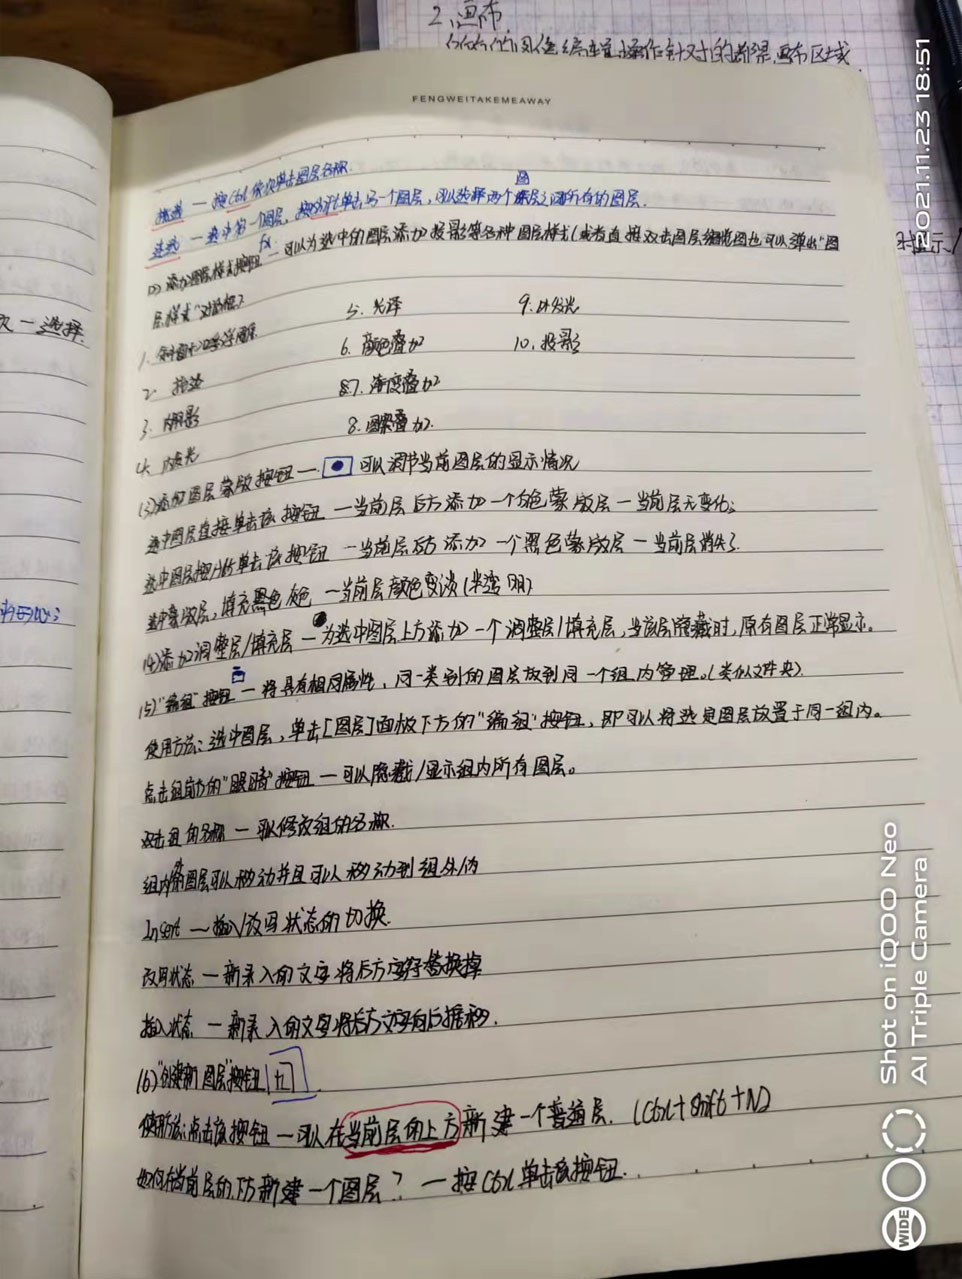 2、画布
FENGWEITAKEMEAWAY
挑选 — 按Ctrl 依次单击图层名称.
连选 — 选中第一个图层, 按shift单击另一个图层, 可以选择两个图层之间所有的图层.
(2) 添加图层样式按钮 fx — 可以为选中的图层添加投影等各种图层样式(或者直接双击图层缩览图也可以弹出"图
层样式"对话框)
5. 光泽 9. 外发光
1. 斜面和浮雕 6. 颜色叠加 10. 投影
2. 描边 7. 渐变叠加
3. 内阴影 8. 图案叠加.
4. 内发光
(3)添加图层蒙版按钮 — 可以调节当前图层的显示情况
选中图层直接单击该按钮 — 当前层后方添加一个白色蒙版层 — 当前层无变化;
选中图层按Alt单击该按钮 — 当前层后方添加一个黑色蒙版层 — 当前层消失了.
选中蒙版层, 填充黑色灰色 — 当前层颜色变淡(半透明)
(4)添加调整层/填充层 — 为选中图层上方添加一个调整层/填充层, 当该层隐藏时, 原有图层正常显示。
(5)"编组"按钮 — 将具有相同属性, 同一类别的图层放到同一个组内管理。(类似文件夹).
使用方法: 选中图层, 单击[图层]面板下方的"编组"按钮, 即可以将选定图层放置于同一组内。
点击组前方的"眼睛"按钮 — 可以隐藏/显示组内所有图层。
双击组的名称 — 可以修改组的名称.
组内的图层可以移动并且可以移动到组外
Insert — 插入/改写状态的切换.
改写状态 — 新录入的文字将后方文字替换掉
插入状态 — 新录入的文字将后方文字向后推移.
(6)"创建新图层"按钮
使用方法: 点击该按钮 — 可以在当前层的上方新建一个普通层. (Ctrl+Shift+N)
如何在当前层的下方新建一个图层? — 按Ctrl单击该按钮.
一选择.
2021.11.23 18:51
Shot on iQOO Neo
AI Triple Camera
WIDE